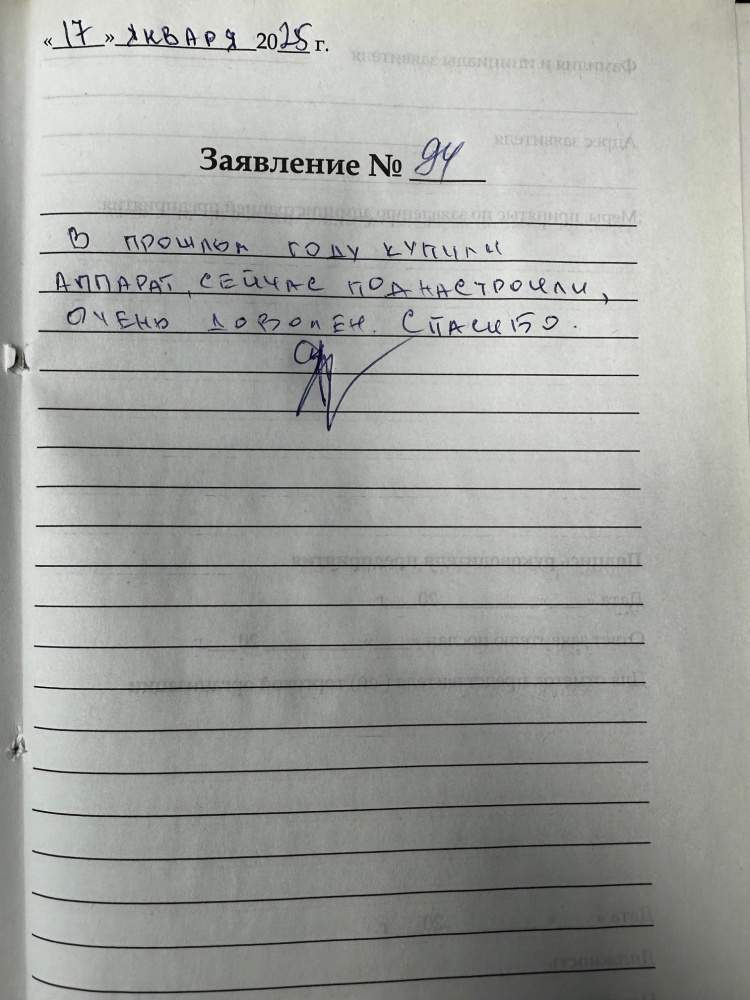 «17» января 2025 г.
Заявление № 94
В прошлом году купили
аппарат, сейчас поднастроили,
очень доволен. Спасибо.